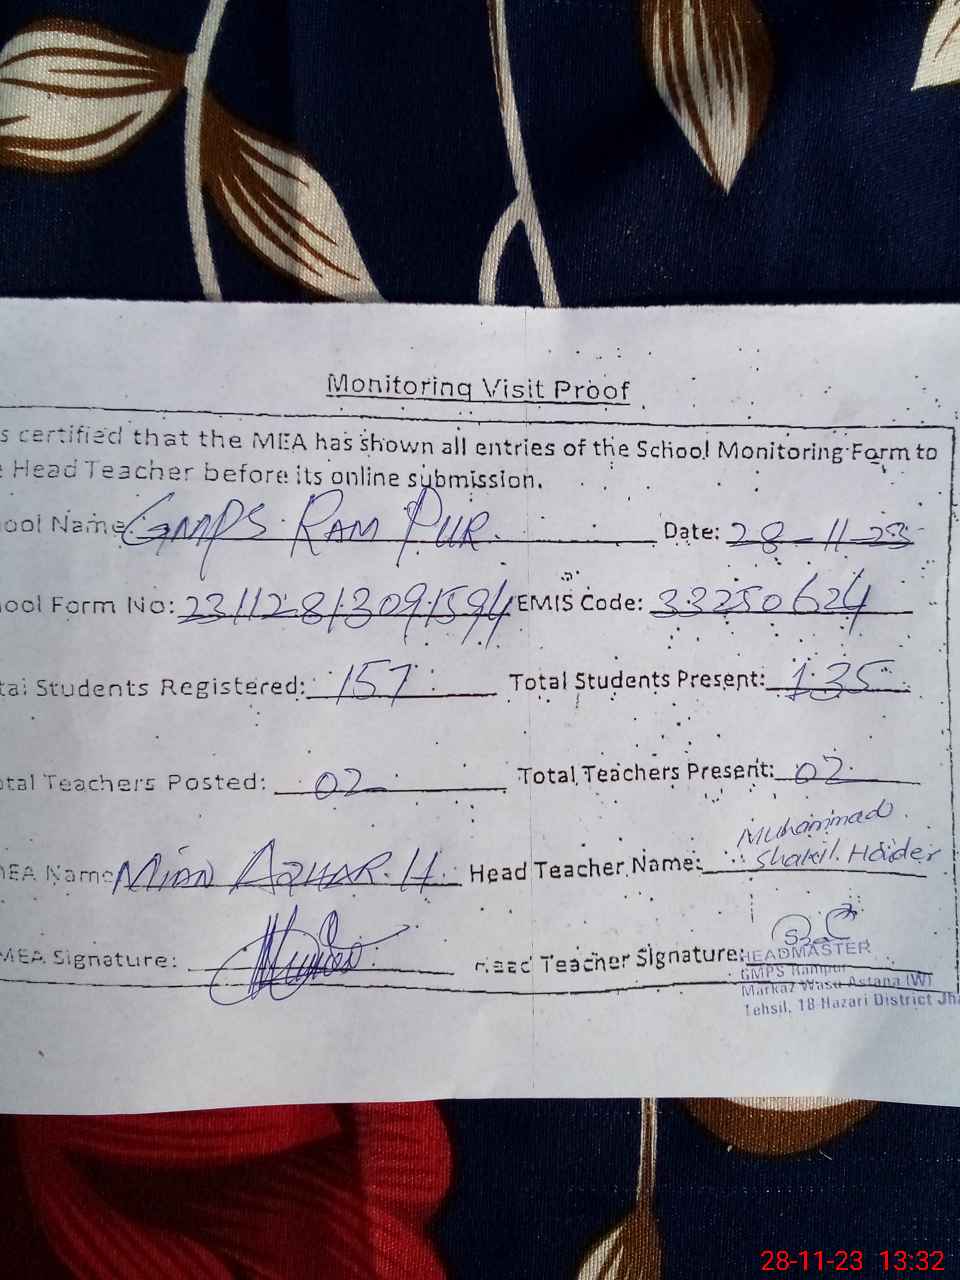 Monitoring Visit Proof
s certified that the MEA has shown all entries of the School Monitoring Form to
e Head Teacher before its online submission.
ool Name GMPS RAM PUR. Date: 28-11-23
ool Form No: 23112813091594 EMIS Code: 33250624
tal Students Registered: 157 Total Students Present: 135
otal Teachers Posted: 02 Total Teachers Present: 02
MEA Name MIAN AZHAR. H. Head Teacher Name: Muhammad
Shakil. Haider
MEA Signature: Head Teacher Signature:
HEADMASTER
GMPS Rampur
Markaz Wasu Astana (W)
Tehsil, 18-Hazari District Jha
28-11-23 13:32